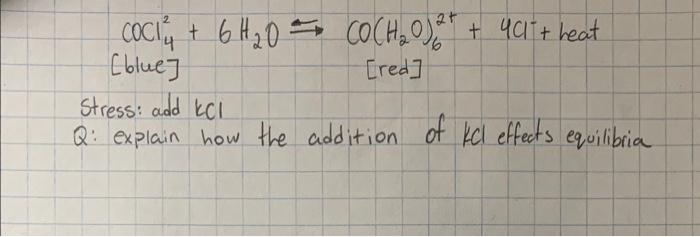 COCl₄² + 6 H₂O ⇌ CO(H₂O)₆²⁺ + 4Cl⁻ + heat
[blue] [red]
Stress: add KCl
Q: explain how the addition of KCl effects equilibria